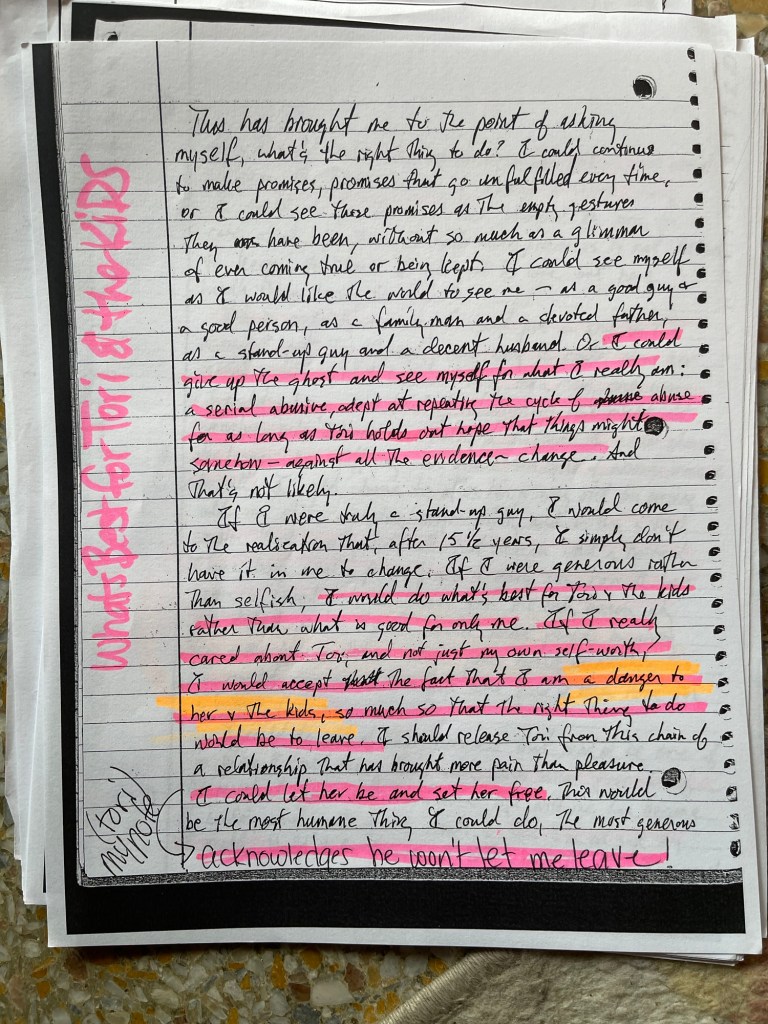 What's Best for Tori & the KiDS
This has brought me to the point of asking
myself, what's the right thing to do? I could continue
to make promises, promises that go unfulfilled every time,
or I could see those promises as the empty gestures
they have been, without so much as a glimmer
of ever coming true or being kept. I could see myself
as I would like the world to see me – as a good guy &
a good person, as a family man and a devoted father,
as a stand-up guy and a decent husband. Or I could
give up the ghost and see myself for what I really am:
a serial abusive, adept at repeating the cycle of abuse
for as long as Tori holds out hope that things might
somehow – against all the evidence – change. And
that's not likely.
If I were truly a stand-up guy, I would come
to the realization that, after 15 1/2 years, I simply don't
have it in me to change. If I were generous rather
than selfish, I would do what's best for Tori & the kids
rather than what is good for only me. If I really
cared about Tori, and not just my own self-worth,
I would accept the fact that I am a danger to
her & the kids, so much so that the right thing to do
would be to leave. I should release Tori from this chain of
a relationship that has brought more pain than pleasure.
I could let her be and set her free. This would
be the most humane thing I could do, the most generous
my (Tori) note
acknowledges he won't let me leave!